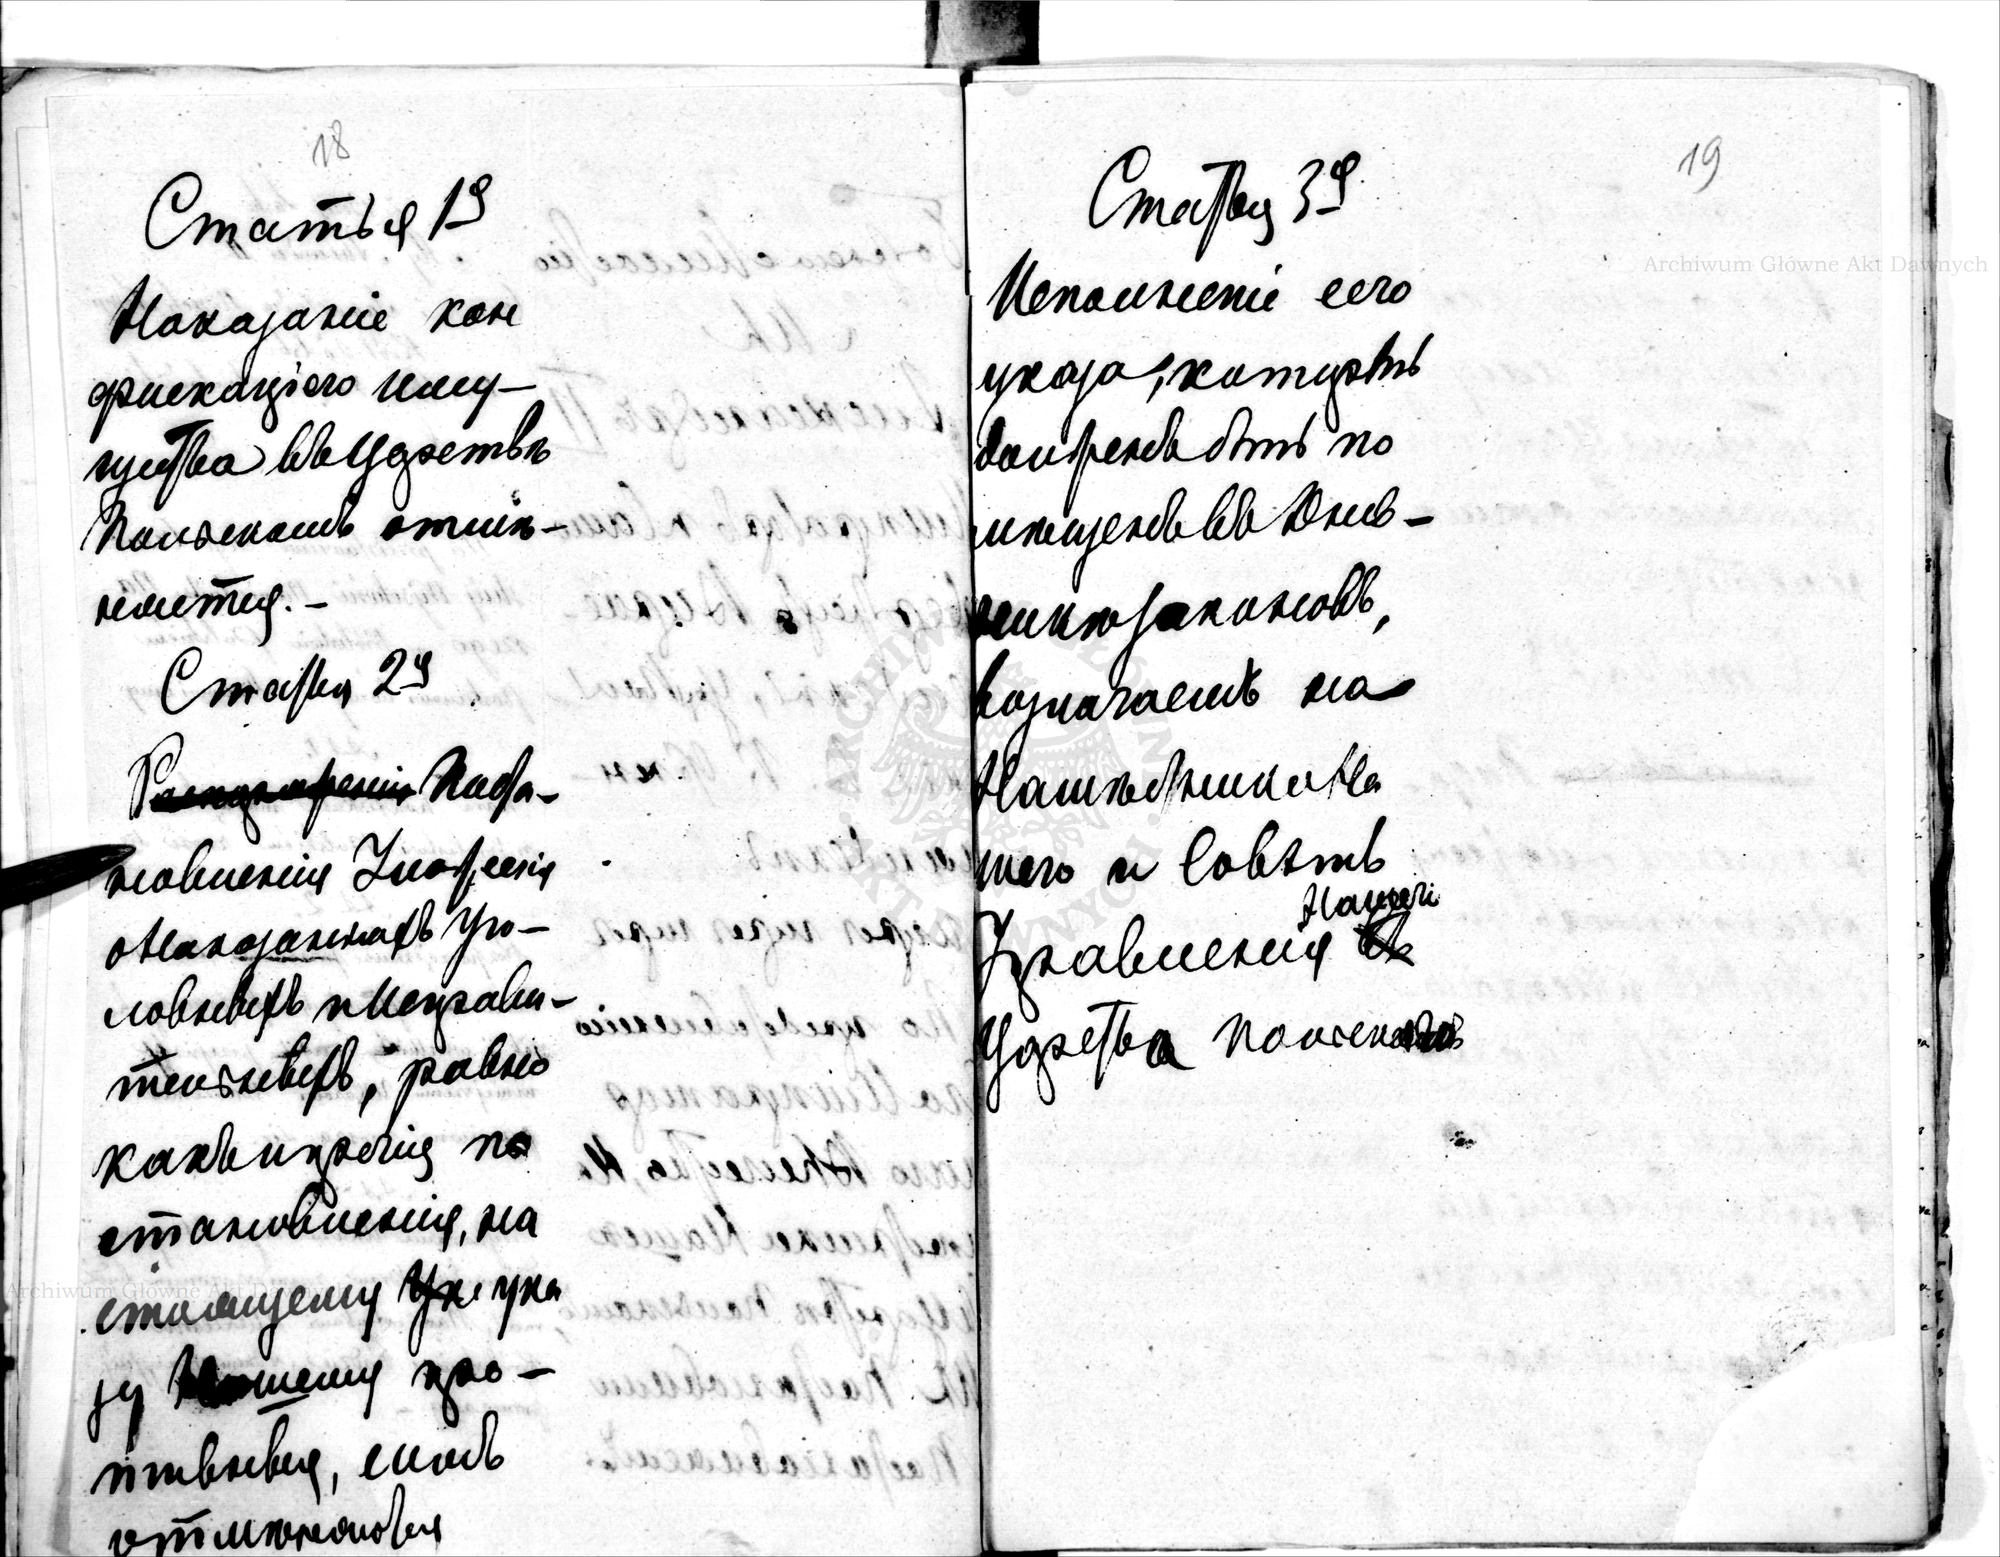 18
Статья 1я
Наказаніе кон
фискаціею иму-
щества въ Царствѣ
Польскомъ отмѣ-
няется.-
Статья 2я
Распоряженія Поста-
новленія Уложенія
о Наказаніяхъ Уго-
ловныхъ и Исправи-
тельныхъ, равно
какъ и прочія по
становленія, на
стоящему Ука ука
зу Нашему про-
тивныя, симъ
отмѣняются
19
Статья 3я
Исполненіе сего
указа, который
долженъ быть по
мѣщенъ въ Днев-
никѣ законовъ,
возлагаемъ на
Намѣстника На
шего и Совѣтъ
Нашей
Управленія
Царства Польскаго
Archiwum Główne Akt Dawnych
Archiwum Główne Akt Dawnych
ARCHIWUM GŁÓWNE AKT DAWNYCH